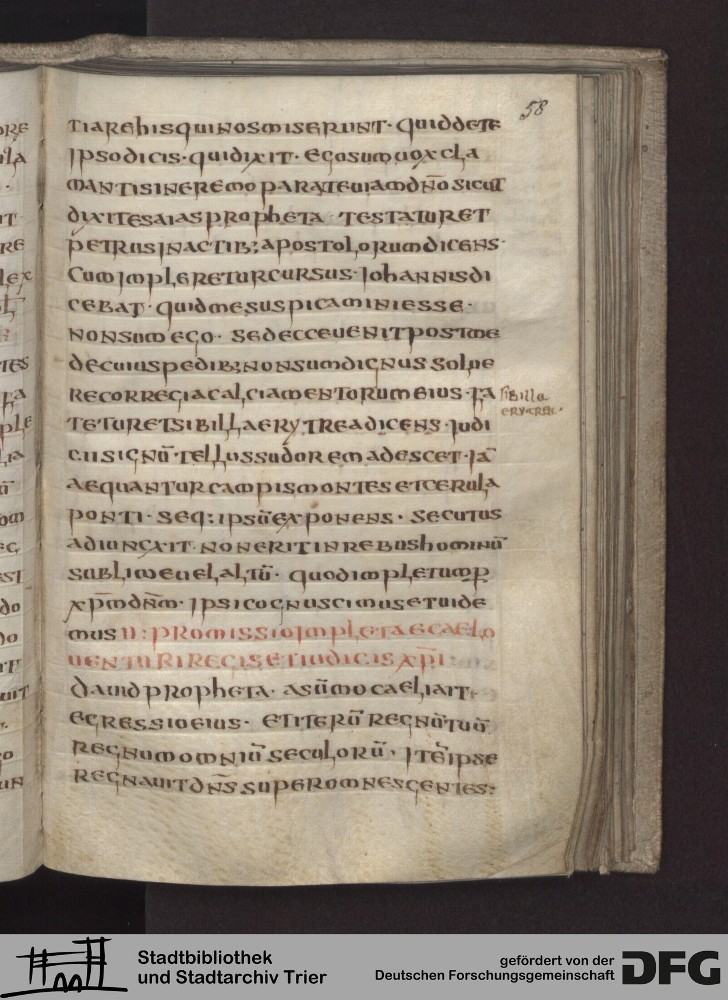 58
tiare his qui nos miserunt · quid de te
ipso dicis · qui dixit · ego sum uox cla
mantis in eremo parate uiam dn̄o sicut
dixit esaias propheta · testatur et
petrus in actib; apostolorum dicens ·
Cum impleretur cursus · Iohannis di
cebat · quid me suspicamini esse ·
non sum ego · sed ecce uenit post me
de cuius pedib; non sum dignus solue
re corregia calciamentorum eius · fa
sibilla
erytrea ·
tetur et sibilla erytrea dicens · iudi
cii signū · tellus sudore madescet · iā
aequantur campis montes et cerula
ponti · seq: ipsū exponens · secutus
adiunxit · non erit in rebus hominū
sublime uel altū · quod impletum p̱
xp̄m dn̄m · ipsi cognuscimus et uide
mus II: promissio impleta e caelo
uenturi regis et iudicis xp̄i
Dauid propheta · a sūmo caeli ait ·
egressio eius · et iterū regnū tuū
regnum omniū seculorū · itē ipse
regnauit dn̄s super omnes gentes:
Stadtbibliothek
und Stadtarchiv Trier
gefördert von der
Deutschen Forschungsgemeinschaft
DFG